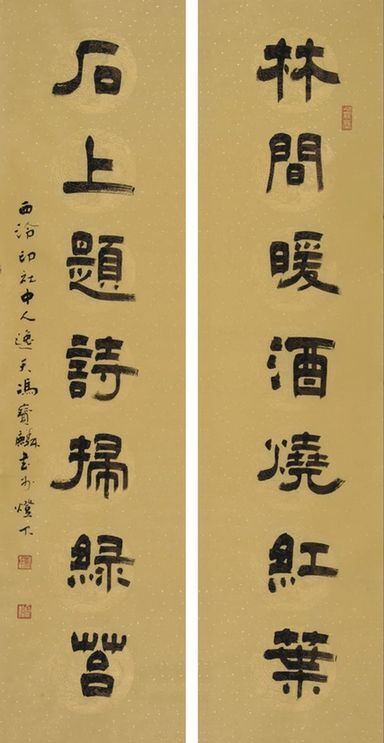 林間暖酒燒紅葉
石上題詩掃綠苔
西泠印社中人逸馮寶麟書於燈下